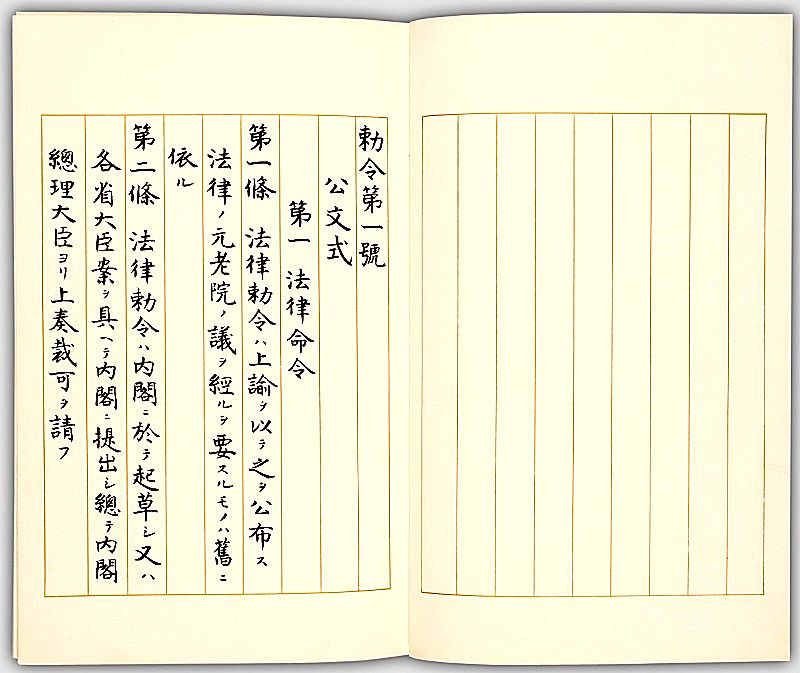 勅令第一號
公文式
第一 法律命令
第一條 法律勅令ハ上諭ヲ以テ之ヲ公布ス
法律ノ元老院ノ議ヲ經ルヲ要スルモノハ舊ニ
依ル
第二條 法律勅令ハ内閣ニ於テ起草シ又ハ
各省大臣案ヲ具ヘテ内閣ニ提出シ總テ内閣
總理大臣ヨリ上奏裁可ヲ請フ